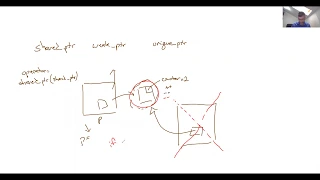 shared_ptr weak_ptr unique_ptr
operator=
shared_ptr(shared_ptr)
counter=2
P